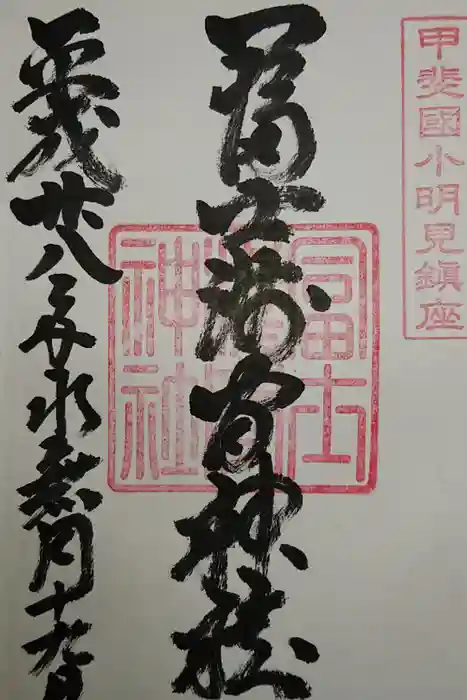 甲斐國小明見鎮座
冨士浅間神社
冨士
神社
平成廿八年水無月十九日